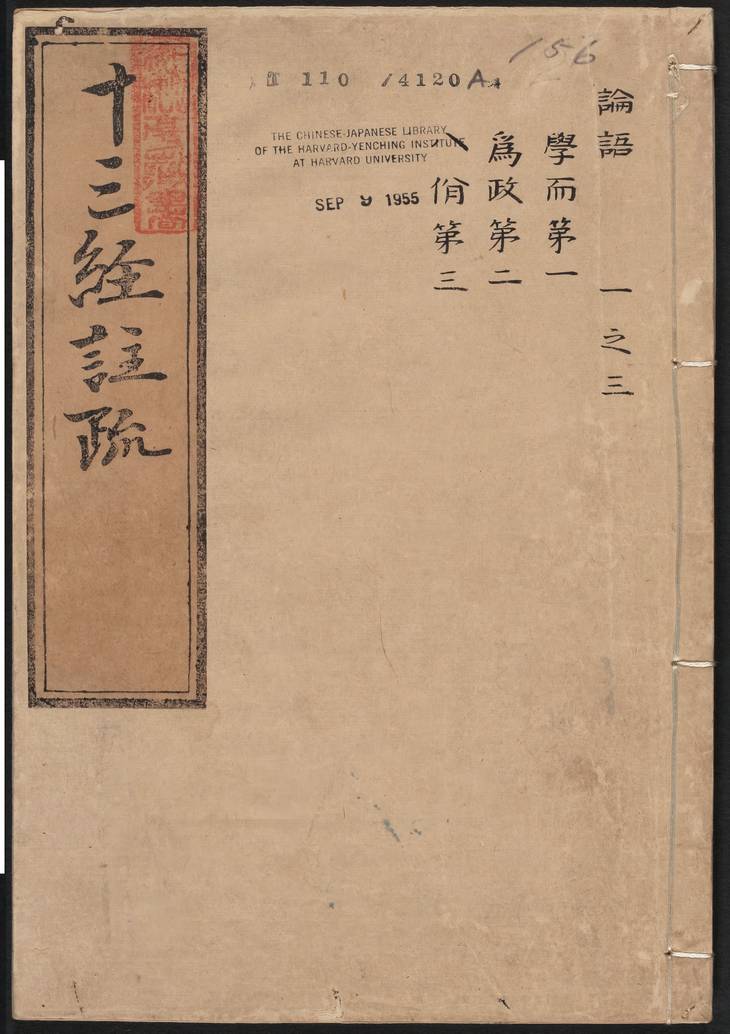 156
T 110 /4120 A
THE CHINESE-JAPANESE LIBRARY
OF THE HARVARD-YENCHING INSTITUTE
AT HARVARD UNIVERSITY
SEP 9 1955
論語 一之三
學而第一
爲政第二
八佾第三
十三経註疏